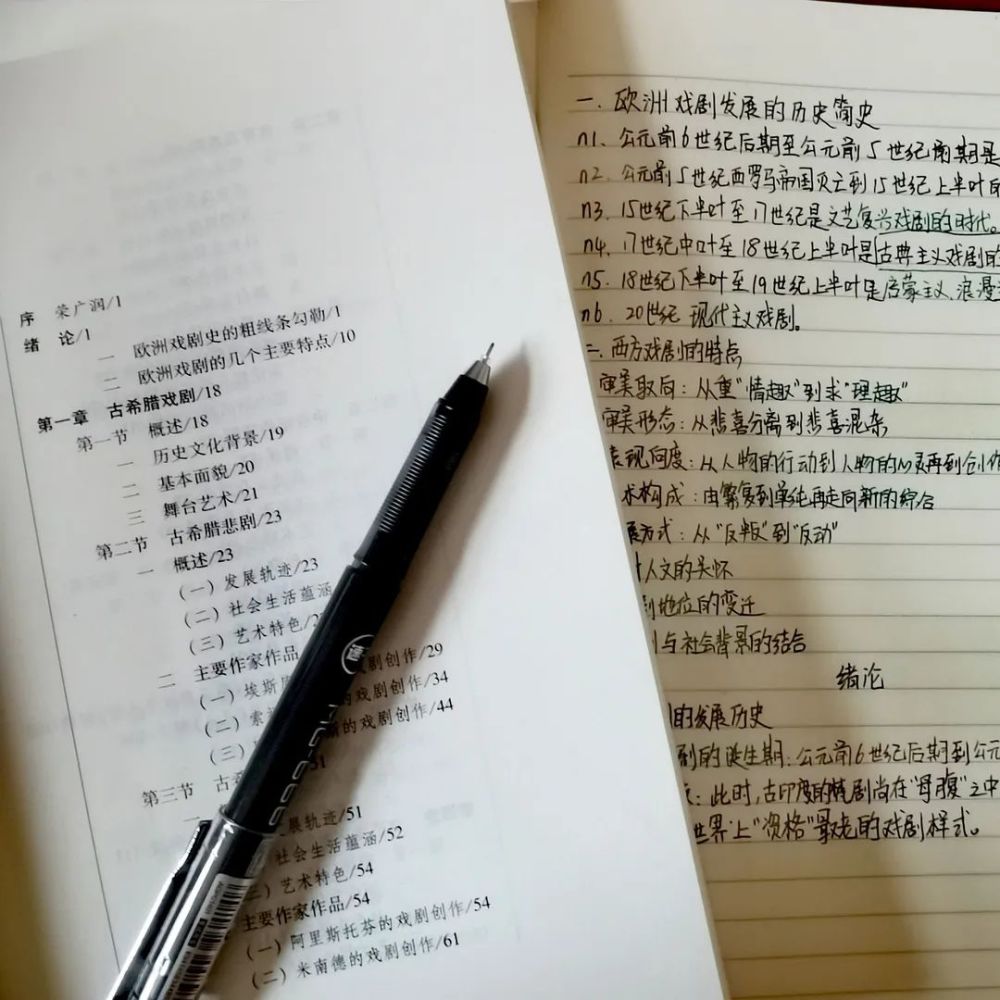 序 荣广润/1
绪 论/1
一 欧洲戏剧史的粗线条勾勒/1
二 欧洲戏剧的几个主要特点/10
第一章 古希腊戏剧/18
第一节 概述/18
一 历史文化背景/19
二 基本面貌/20
三 舞台艺术/21
第二节 古希腊悲剧/23
一 概述/23
(一) 发展轨迹/23
(二) 社会生活蕴涵
(三) 艺术特色/2
二 主要作家作品
(一) 埃斯 戏剧创作/29
(二) 索 的戏剧创作/34
(三) 的戏剧创作/44
第三节 古希 51
一
展轨迹/51
社会生活蕴涵/52
艺术特色/54
主要作家作品/54
(一) 阿里斯托芬的戏剧创作/54
(二) 米南德的戏剧创作/61
一. 欧洲戏剧发展的历史简史
n1. 公元前6世纪后期至公元前5世纪前期是
n2. 公元前5世纪西罗马帝国灭亡到15世纪上半叶
n3. 15世纪下半叶至17世纪是文艺复兴戏剧的时代。
n4. 17世纪中叶至18世纪上半叶是古典主义戏剧的
n5. 18世纪下半叶至19世纪上半叶是启蒙主义、浪漫
n6. 20世纪 现代主义戏剧。
二. 西方戏剧的特点
审美取向：从重"情趣"到求"理趣"
审美形态：从悲喜分离到悲喜混杂
表现向度：从人物的行动到人物的心灵再到创作
术构成：由繁复到单纯再走向新的综合
展方式：从"反叛"到"反动"
人文的关怀
地位的变迁
与社会背景的结合
绪论
的发展历史
剧的诞生期：公元前6世纪后期到公元
：此时，古印度的梵剧尚在"母腹"之中
世界上"资格"最老的戏剧样式。